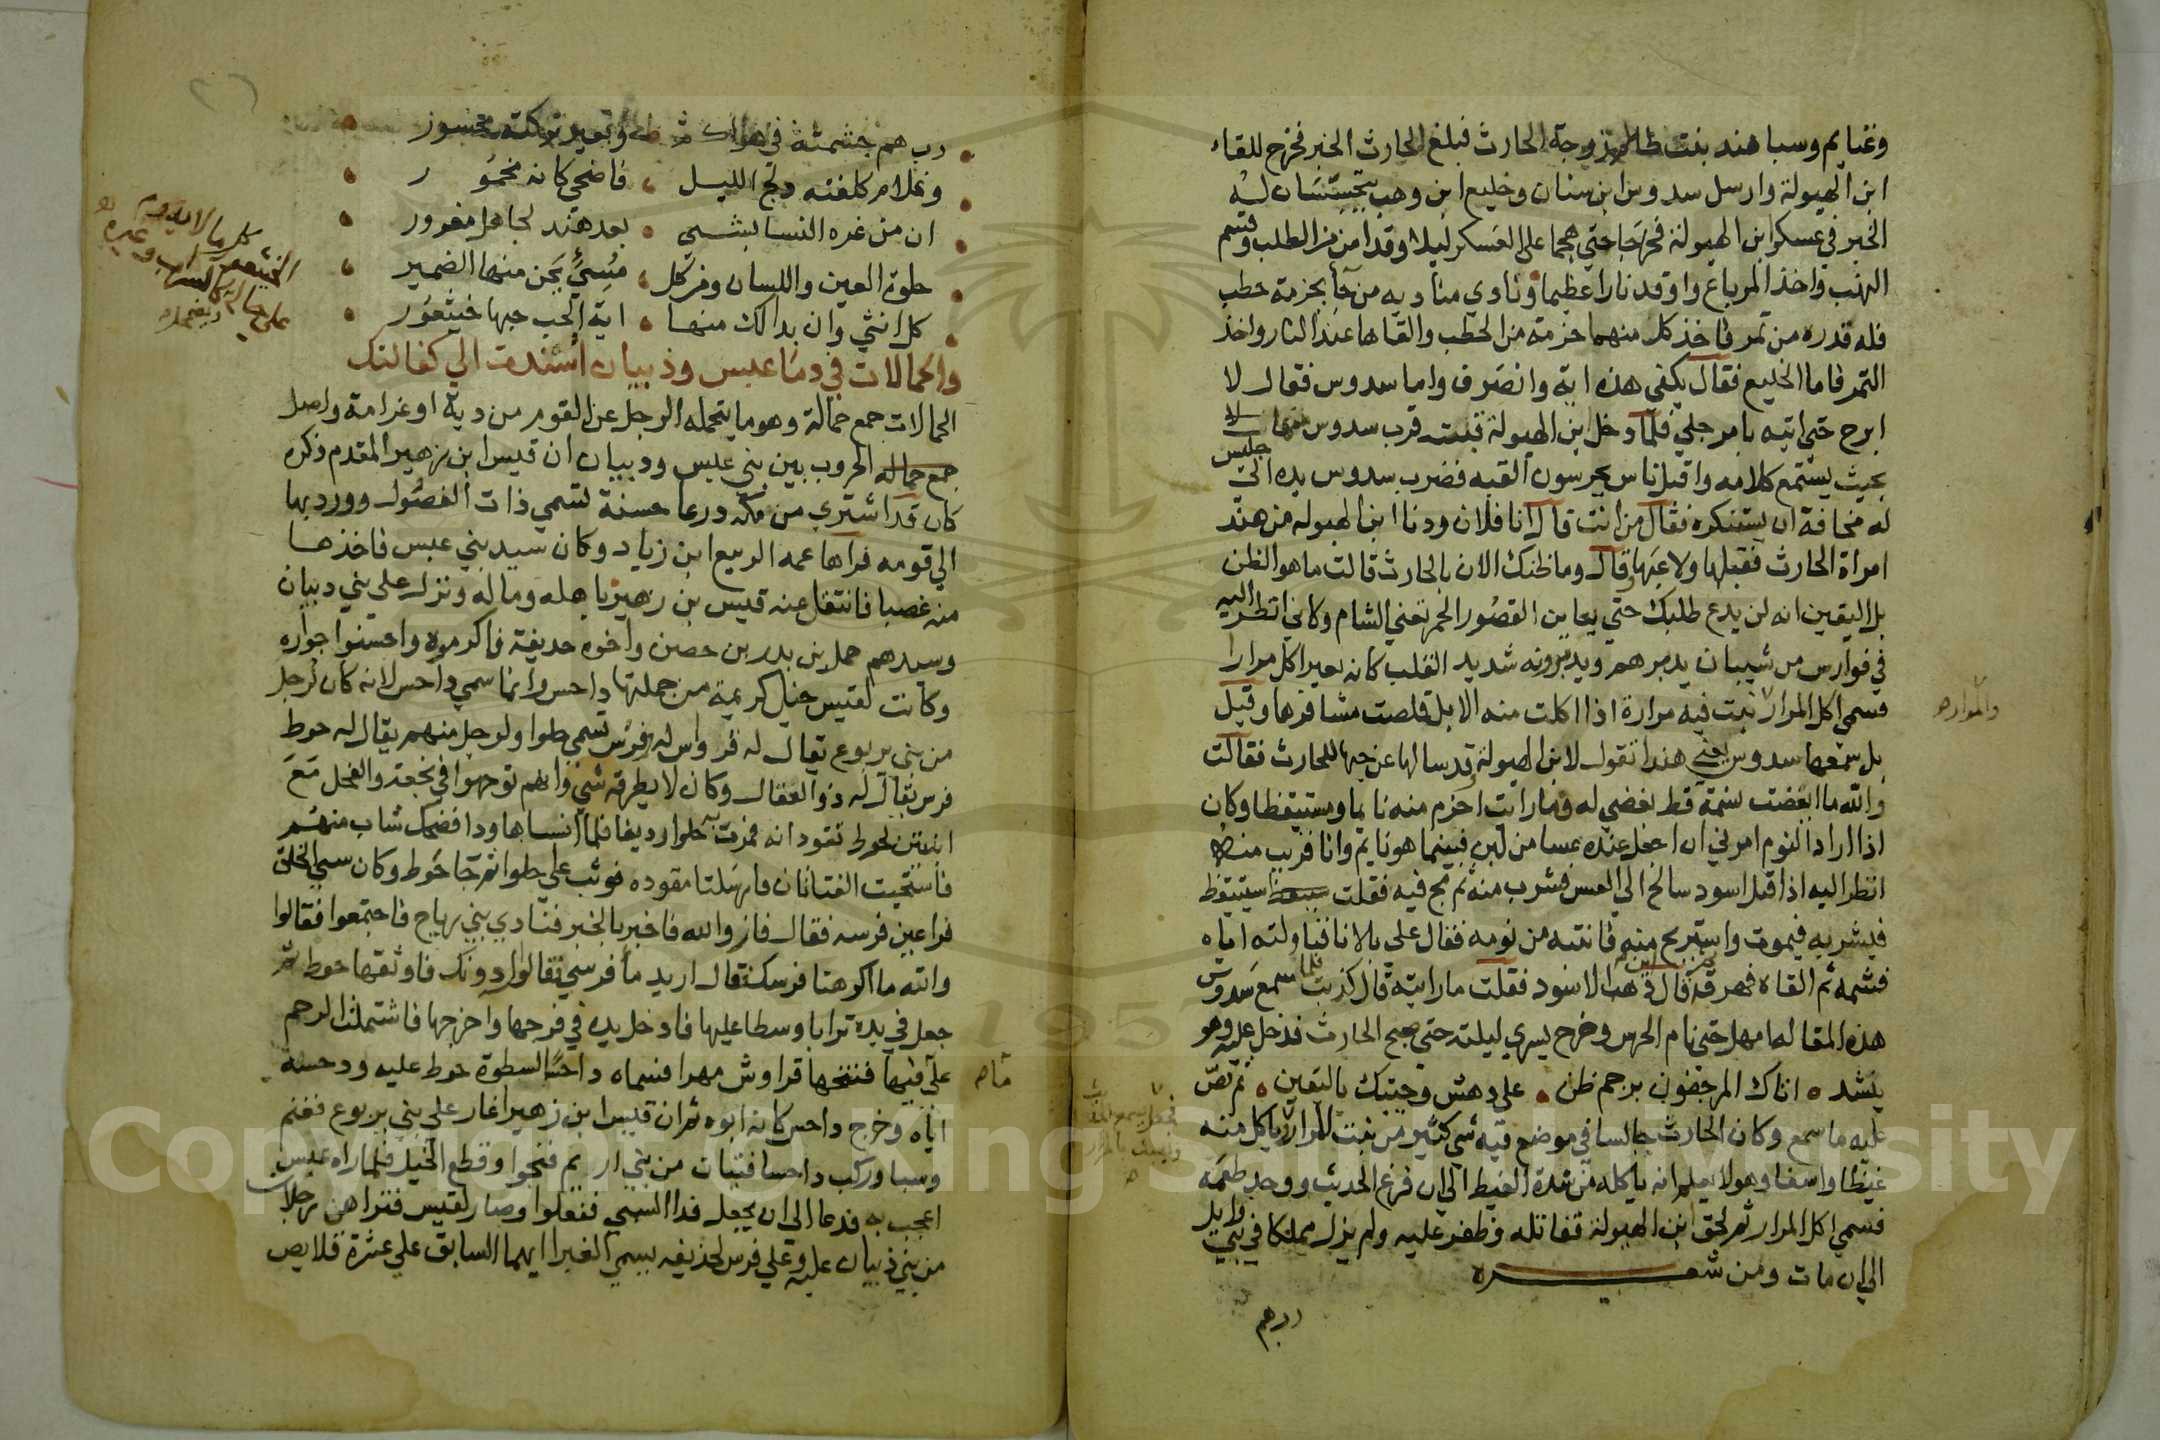 وغنايم وسبا هند بنت ظالم زوجة الحارث فبلغ الحارث الخبر فخرج للقاء
ابن الهبولة وارسل سدوس ابن سنان وخليع ابن وهب يتجسسان له
الخبر في عسكر ابن الهبولة فخرجا حتي هجما علي العسكر ليلا وقد امن من الطلب وقسم
النهب واخذ المرباع واوقد نارا عظيما ونادي مناديه من جآ بحزمة حطب
فله قدره من تمر فاخذ كل منهما حزمة من الحطب والقاها عند النار واخذ
التمر فاما الخليع فقال يكفي هذه اية وانصرف واما سدوس فقال لا
ابرح حتي اتيه بامر جلي فلما دخل ابن الهبولة قبته قرب سدوس منها
بحيث يستمع كلامه واقبل ناس يحرسون القبه فضرب سدوس يده الي جليس
له مخافة ان يستنكره فقال من انت قال انا فلان ودنا ابن الهبوله من هند
امراة الحارث فقبلها ولاعبها وقال وما ظنك الان بالحارث قالت ما هو الظن
بل اليقين انه لن يدع طلبك حتي يعاين القصور الحمر تعني الشام وكاني انظر اليه
في فوارس من شيبان يدمرهم ويدمرونه شديد القلب كانه بعير اكل مرارا
فسمي اكل المرار لا نبت فيه مرارة اذا اكلت منه الابل قلصت مشافرها وقيل
والمراره
بل سمعها سدوس يعني هندا تقول لابن الهبولة وقد سالها عن حبها للحارث فقالت
والله ما ابغضت نسمة قط بغضي له وما رايت احزم منه نايما ومستيقظا وكان
اذا اراد النوم امرني ان اجعل عنده عسا من لبن فبينما هو نايم وانا قريب منه
انظر اليه اذا قبل اسود سالخ الي العس فشرب منه ثم مج فيه فقلت يستيقظ
فيشربه فيموت واستريح منه فانتبه من نومه فقال علي بالانا فناولته اياه
فشمه ثم القاه فهرقه وقال اين ذهب الاسود فقلت ما رايته قال كذبت فلما سمع سدوس
هذه المقاله امهل حتي نام الحرس وخرج يسري ليلته حتي صبح الحارث فدخل عليه وهو
ينشد اتاك المرجفون برجم ظن علي دهش وجيتك باليقين ثم قص
عليه ما سمع وكان الحارث جالسا في موضع فيه شي كثير من نبت المرار ياكل منه
غيظا واسفا وهو لا يعلم انه ياكله من شدة الغيظ الي ان فرغ الحديث ووجد طعمه
فسمي اكل المرار ثم لحق ابن الهبولة فقاتله وظفر عليه ولم يزل مملكا في بني وايل
الي ان مات ومن شعره
رب هم
رب هم جشمته في هواك وبعير تركته محسور
وغلام كلفته دلج الليل فاضحي كانه مخمور
ان من غره النسا بشي بعد هند لجاهل مغرور
حلوة العين واللسان ومر كل شي يجن منها الضمير
كل انثي وان بدا لك منها اية الحب حبها خيتعور
الخيتعور كل ما لا يدوم
علي حالة كالسراب وغيره
ويضمحل
والحمالات في دما عبس وذبيان اسندت الي كفالتك
الحمالات جمع حمالة وهو ما يتحمله الرجل عن القوم من دية او غرامة واصل
جمع حماله الحروب بين بني عبس ودبيان ان قيس ابن زهير المقدم ذكره
كان قد اشتري من مكه درعا حسنة تسمي ذات الفضول وورد بها
الي قومه فراها عمه الربيع ابن زياد وكان سيد بني عبس فاخذها
منه غصبا فانتقل عنه قيس بن زهير باهله وماله ونزل علي بني دبيان
وسيدهم حمل بن بدر بن حصن واخوه حديفة فاكرموه واحسنوا جواره
وكانت لقيس خيل كريمة من جملتها داحس وانما سمي داحس لانه كان لرجل
من بني يربوع يقال له قرواس له فرس تسمي جلوا ولرجل منهم يقال له حوط
فرس يقال له ذو العقال وكان لا يطرقه شي وانهم توجهوا في نجعة والفحل مع
ابنتين لحوط تقودانه فمرت به جلوا رديقا فلما انساها ودا فضحك شاب منهم
فاستحيت الفتاتان فارسلتا مقوده فوثب علي جلوا ثم جا حوط وكان سي الخلق
فرا عين فرسه فقال فانزوالله فاخبر بالخبر فنادي بني رياح فاجتمعوا فقالوا
والله ما اكرهنا فرسك فقال اريد ما فرسي فقالوا دونك فاوثقها حوط ثم
جعل في يده ترابا وسطا عليها فادخل يده في فرجها واخرجها فاشتملت الرحم
علي فيها فنتجها قرواش مهرا فسماه داحسا لسطوة حوط عليه ودحسه
ماه
اياه وخرج داحس كانه ابوه ثم ان قيس ابن زهير اغار علي بني يربوع فغنم
وسبا وركب داحسا فتيان من بني ازنم فنجوا وقطع الخيل فلما راه عبس
اعجب به فدعا الي ان يجعل فدا السبي ففعلوا وصار لقيس فتراهن رجلان
من بني ذبيان عليه وعلي فرس لحذيفه يسمي الغبرا ايهما السابق علي عشرة قلايص
Copyright © King Saud University
1957